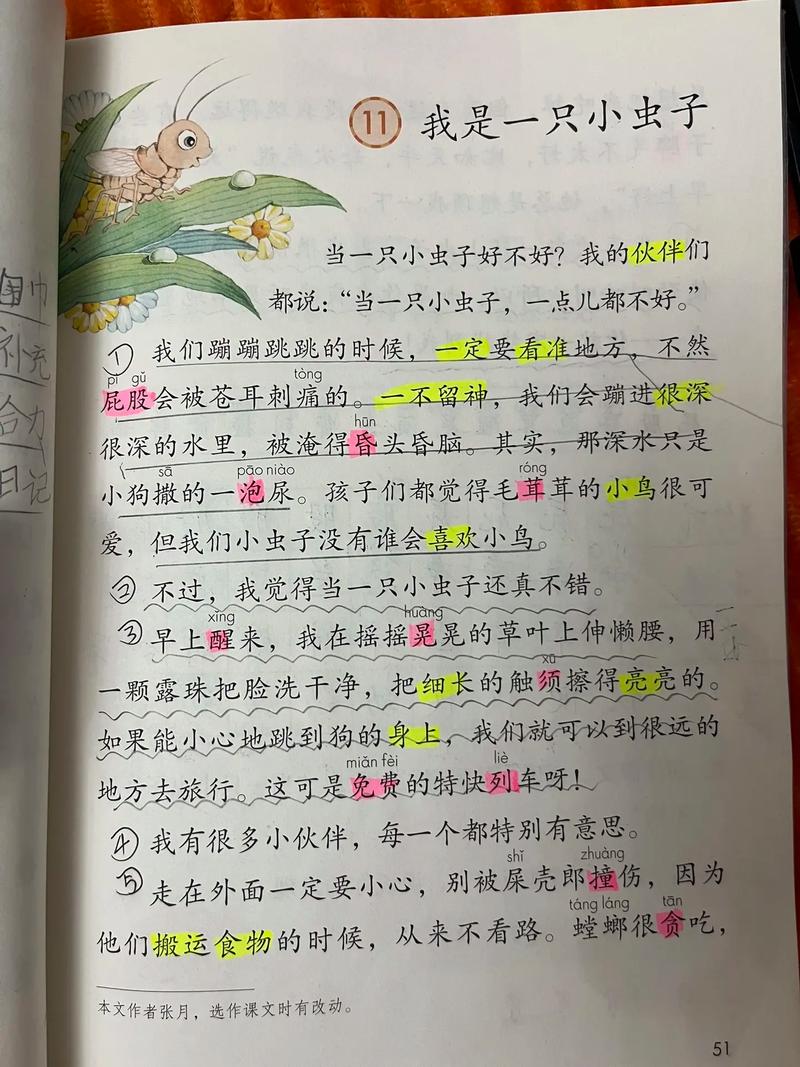 11 我是一只小虫子
当一只小虫子好不好？我的伙伴们
都说：“当一只小虫子，一点儿都不好。”
① 我们蹦蹦跳跳的时候，一定要看准地方，不然
pì gǔ tòng
屁股会被苍耳刺痛的。一不留神，我们会蹦进很深
hūn
很深的水里，被淹得昏头昏脑。其实，那深水只是
sā pāo niào róng
小狗撒的一泡尿。孩子们都觉得毛茸茸的小鸟很可
爱，但我们小虫子没有谁会喜欢小鸟。
② 不过，我觉得当一只小虫子还真不错。
xǐng huàng
③ 早上醒来，我在摇摇晃晃的草叶上伸懒腰，用
xū
一颗露珠把脸洗干净，把细长的触须擦得亮亮的。
如果能小心地跳到狗的身上，我们就可以到很远的
miǎn fèi liè
地方去旅行。这可是免费的特快列车呀！
④ 我有很多小伙伴，每一个都特别有意思。
shǐ zhuàng
⑤ 走在外面一定要小心，别被屎壳郎撞伤，因为
táng láng tān
他们搬运食物的时候，从来不看路。螳螂很贪吃，
本文作者张月，选作课文时有改动。
51
巾
补充
合力
日记